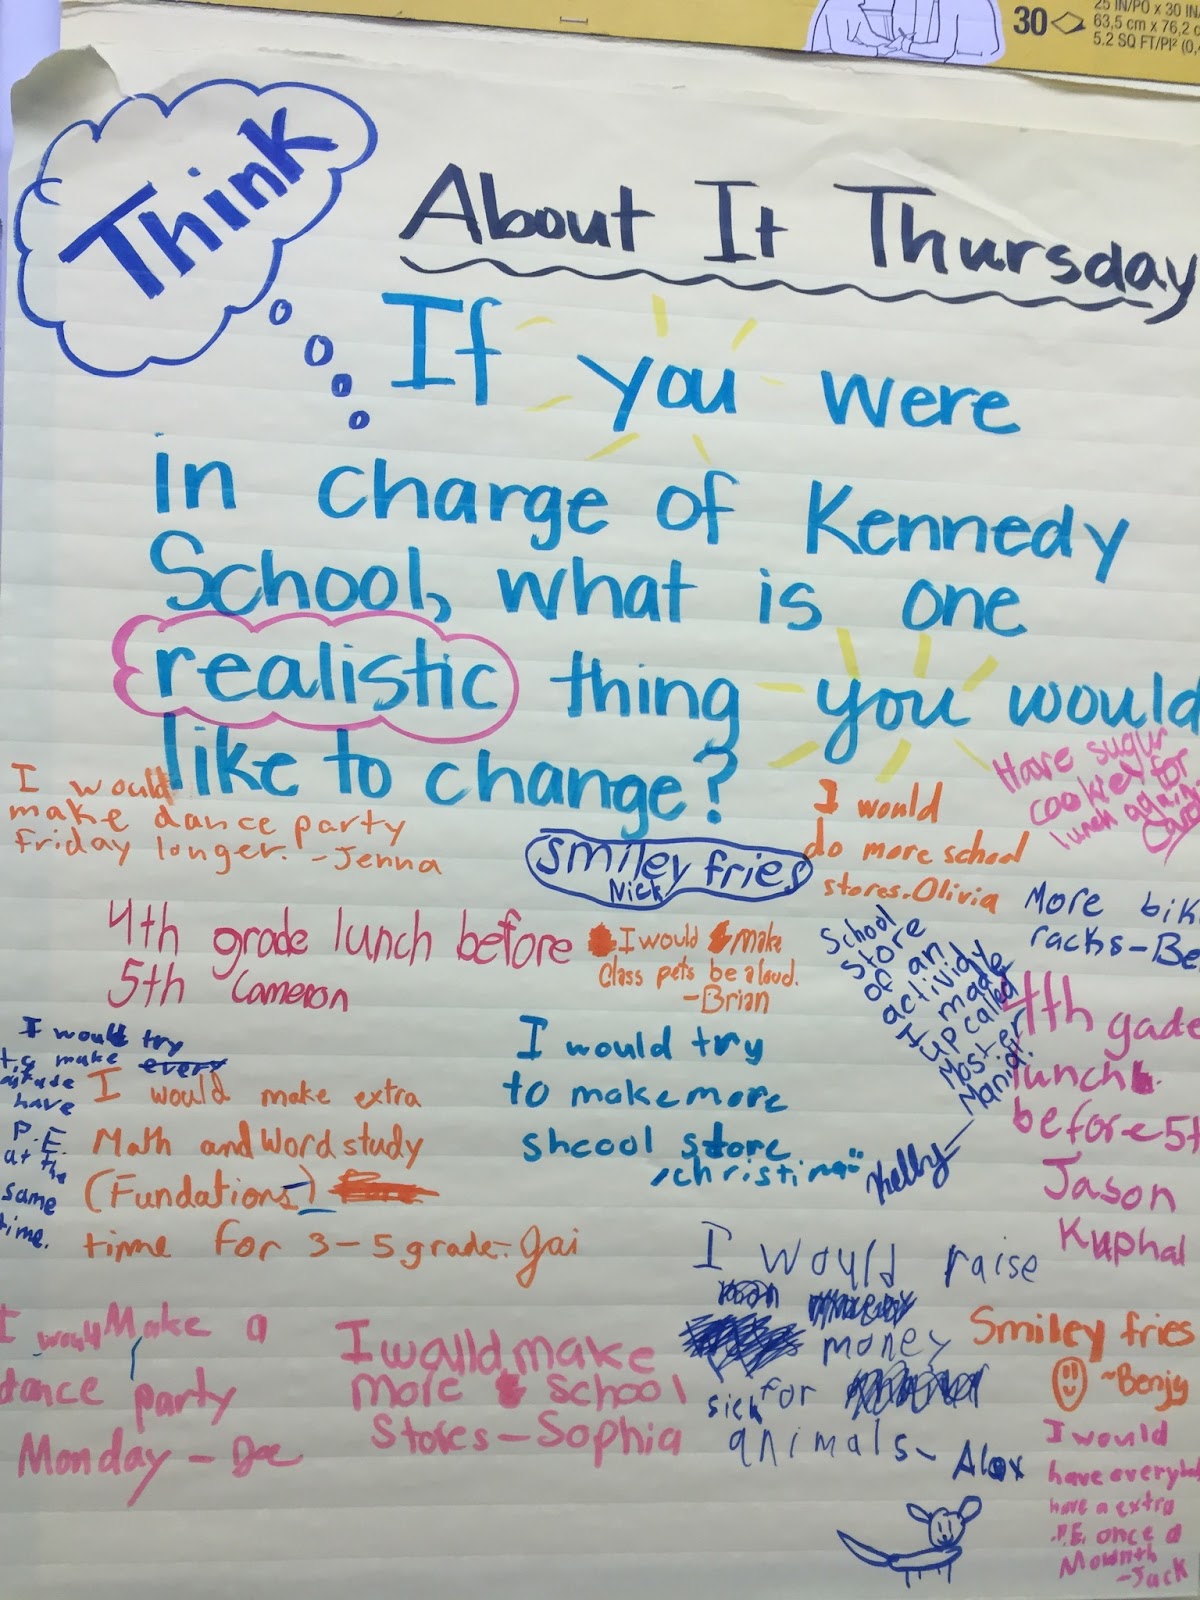 30
25 IN/PO x 30 IN/
63,5 cm x 76,2 c
5.2 SQ FT/PI² (0,
Think
About It Thursday
If you were
in charge of Kennedy
School, what is one
realistic thing you would
like to change?
I would
make dance party
Friday longer. -Jenna
smiley fries
Nick
I would
do more school
stores. Olivia
Have sugur
cookies for
lunch
More bik
racks-Be
4th grade lunch before
5th Cameron
I would make
Class pets be aloud.
-Brian
School
Store
of an
actividye
I made
up called
Most er
Mania!
Kelly-
4th gade
lunch
before 5t
Jason
Kuphal
I would try
make every
have
P.E.
at the
same
time.
I would make extra
Math and word study
(Fundations)
time for 3-5 grade-Jai
I would try
to make more
shcool store
christina
I would Make a
dance party
Monday - Dee
I woulld make
more school
Stores-Sophia
I would raise
money
for
sick
animals- Alex
Smiley fries
~Benjy
I would
have everybod
have a extra
P.E. once a
Mownth
-Jack